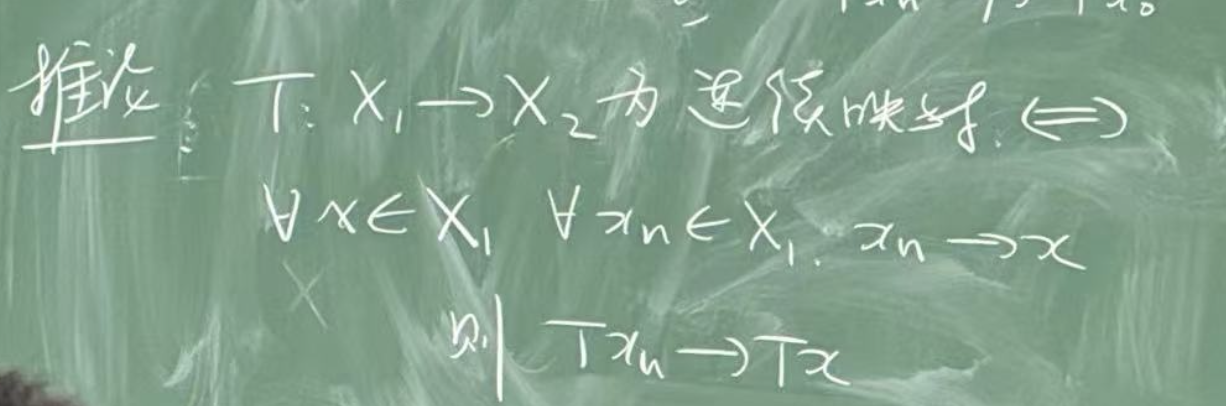 推论: T: X₁→X₂ 为连续映射. ⟺
∀x∈X₁ ∀xₙ∈X₁. xₙ→x
则 Txₙ→Tx